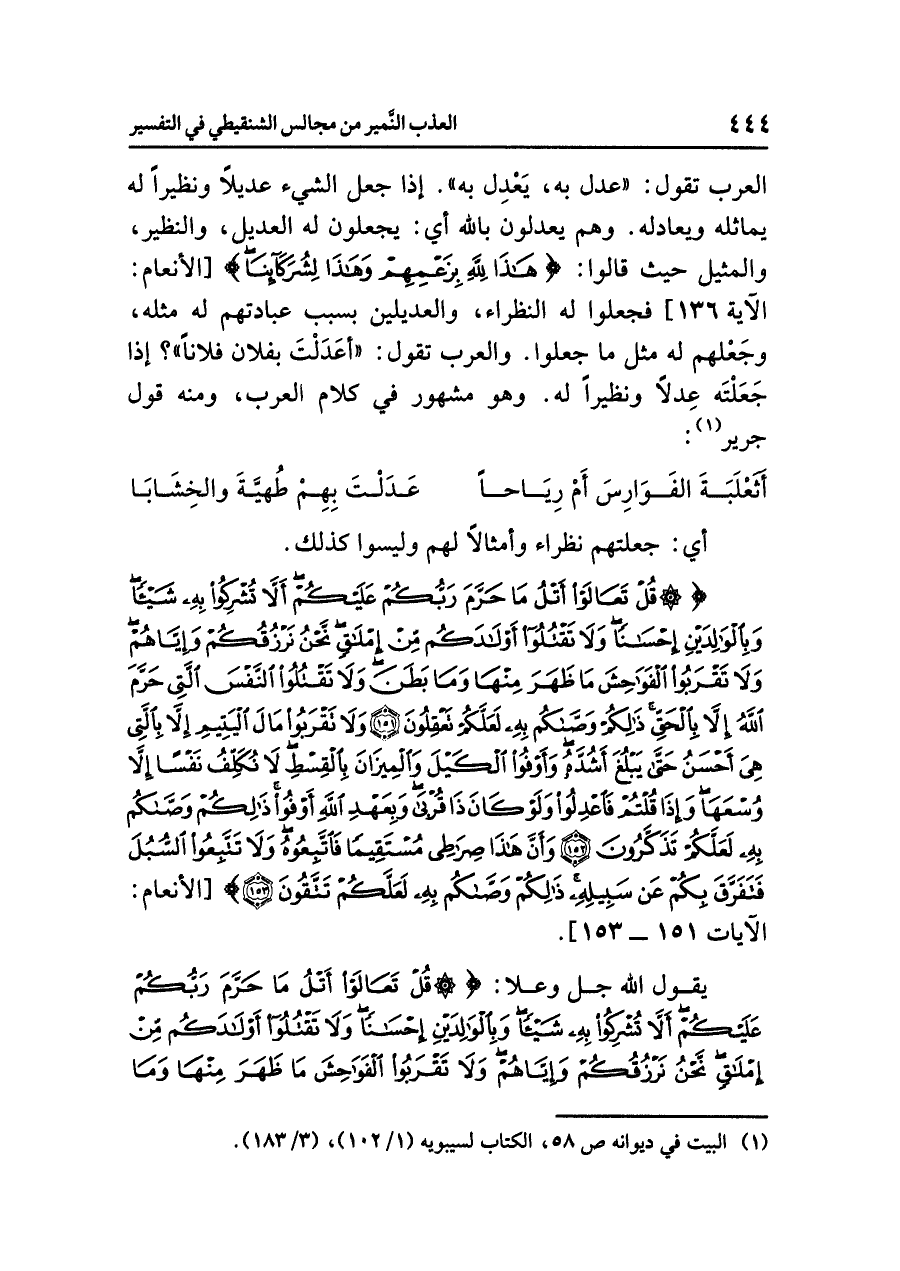 ٤٤٤ العذب النَّمير من مجالس الشنقيطي في التفسير
العرب تقول: «عدل به، يَعْدِل به». إذا جعل الشيء عديلاً ونظيراً له
يماثله ويعادله. وهم يعدلون بالله أي: يجعلون له العديل، والنظير،
والمثيل حيث قالوا: ﴿ هَٰذَا لِلَّهِ بِزَعْمِهِمْ وَهَٰذَا لِشُرَكَآئِنَا ﴾ [الأنعام:
الآية ١٣٦] فجعلوا له النظراء، والعديلين بسبب عبادتهم له مثله،
وجَعْلهم له مثل ما جعلوا. والعرب تقول: «أعَدَلْتَ بفلان فلاناً»؟ إذا
جَعَلْتَه عِدلاً ونظيراً له. وهو مشهور في كلام العرب، ومنه قول
جرير(١):
أَثَعْلَبَةَ الفَوَارِسَ أَمْ رِيَاحاً عَدَلْتَ بِهِمْ طُهيَّةَ والخِشَابَا
أي: جعلتهم نظراء وأمثالاً لهم وليسوا كذلك.
﴿ ۞ قُلْ تَعَالَوْا۟ أَتْلُ مَا حَرَّمَ رَبُّكُمْ عَلَيْكُمْ ۖ أَلَّا تُشْرِكُوا۟ بِهِۦ شَيْـًٔا ۖ
وَبِٱلْوَٰلِدَيْنِ إِحْسَٰنًا ۖ وَلَا تَقْتُلُوٓا۟ أَوْلَٰدَكُم مِّنْ إِمْلَٰقٍ ۖ نَّحْنُ نَرْزُقُكُمْ وَإِيَّاهُمْ ۖ
وَلَا تَقْرَبُوا۟ ٱلْفَوَٰحِشَ مَا ظَهَرَ مِنْهَا وَمَا بَطَنَ ۖ وَلَا تَقْتُلُوا۟ ٱلنَّفْسَ ٱلَّتِى حَرَّمَ
ٱللَّهُ إِلَّا بِٱلْحَقِّ ۚ ذَٰلِكُمْ وَصَّىٰكُم بِهِۦ لَعَلَّكُمْ تَعْقِلُونَ ۝١٥١ وَلَا تَقْرَبُوا۟ مَالَ ٱلْيَتِيمِ إِلَّا بِٱلَّتِى
هِىَ أَحْسَنُ حَتَّىٰ يَبْلُغَ أَشُدَّهُۥ ۖ وَأَوْفُوا۟ ٱلْكَيْلَ وَٱلْمِيزَانَ بِٱلْقِسْطِ ۖ لَا نُكَلِّفُ نَفْسًا إِلَّا
وُسْعَهَا ۖ وَإِذَا قُلْتُمْ فَٱعْدِلُوا۟ وَلَوْ كَانَ ذَا قُرْبَىٰ ۖ وَبِعَهْدِ ٱللَّهِ أَوْفُوا۟ ۚ ذَٰلِكُمْ وَصَّىٰكُم
بِهِۦ لَعَلَّكُمْ تَذَكَّرُونَ ۝١٥٢ وَأَنَّ هَٰذَا صِرَٰطِى مُسْتَقِيمًا فَٱتَّبِعُوهُ ۖ وَلَا تَتَّبِعُوا۟ ٱلسُّبُلَ
فَتَفَرَّقَ بِكُمْ عَن سَبِيلِهِۦ ۚ ذَٰلِكُمْ وَصَّىٰكُم بِهِۦ لَعَلَّكُمْ تَتَّقُونَ ۝١٥٣ ﴾ [الأنعام:
الآيات ١٥١ ــ ١٥٣].
يقول الله جل وعلا: ﴿ ۞ قُلْ تَعَالَوْا۟ أَتْلُ مَا حَرَّمَ رَبُّكُمْ
عَلَيْكُمْ ۖ أَلَّا تُشْرِكُوا۟ بِهِۦ شَيْـًٔا ۖ وَبِٱلْوَٰلِدَيْنِ إِحْسَٰنًا ۖ وَلَا تَقْتُلُوٓا۟ أَوْلَٰدَكُم مِّنْ
إِمْلَٰقٍ ۖ نَّحْنُ نَرْزُقُكُمْ وَإِيَّاهُمْ ۖ وَلَا تَقْرَبُوا۟ ٱلْفَوَٰحِشَ مَا ظَهَرَ مِنْهَا وَمَا
(١) البيت في ديوانه ص ٥٨، الكتاب لسيبويه (١/١٠٢)، (٣/١٨٣).